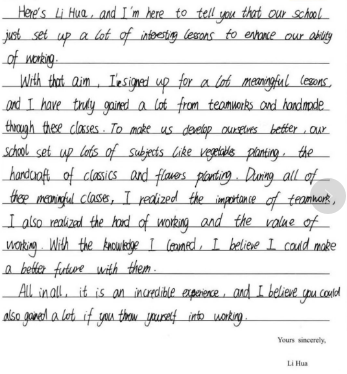 Here's Li Hua, and I'm here to tell you that our school
just set up a lot of interesting lessons to enhance our ability
of working.
With that aim, I signed up for a lot meaningful lessons,
and I have truly gained a lot from teamworks and handmade
through these classes. To make us develop ourselves better, our
school set up lots of subjects like vegetables planting, the
handcraft of classics and flowers planting. During all of
these meaningful classes, I realized the importance of teamwork,
I also realized the hard of working and the value of
working. With the knowledge I learned, I believe I could make
a better future with them.
All in all, it is an incredible experience, and I believe you could
also gained a lot if you throw yourself into working.
Yours sincerely,
Li Hua